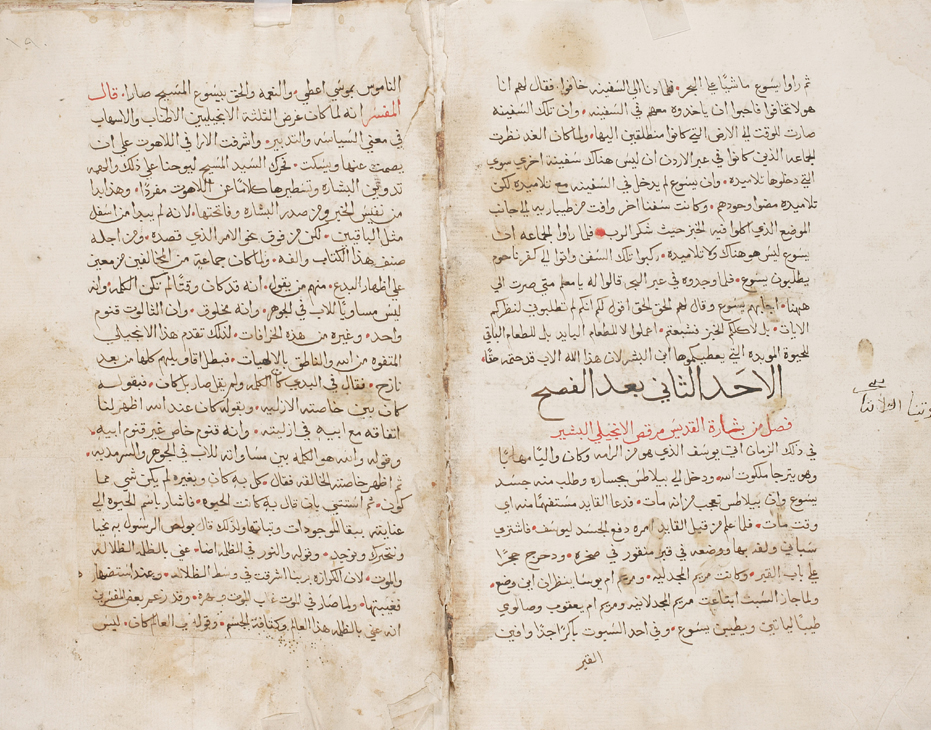 ثم راوا يسوع ماشيًا على البحر • فلما دنا الى السفينه خافوا • فقال لهم انا
هو لا تخافوا فاحبوا ان ياخدوه معهم في السفينه • وان تلك السفينه
صارت للوقت الى الارض التي كانوا منطلقين اليها • ولما كان الغد نظرت
الجماعه الذين كانوا في عبر الاردن ان ليس هناك سفينة اخرى سوى
التي دخلوها تلاميده • وان يسوع لم يدخل في السفينه مع تلاميده لكن
تلاميده مضوا وحدهم • وكانت سفنا اخر وافت من طيباريه الى جانب
الموضع الذي اكلوا فيه الخبز حيث شكر الرب • فلما راوا الجماعه ان
يسوع ليس هو هناك ولا تلاميده • ركبوا تلك السفن واتوا الى كفرناحوم
يطلبون يسوع • فلما وجدوه في عبر البحر قالوا له يا معلم متى صرت الى
ههنا • اجابهم يسوع وقال لهم الحق الحق اقول لكم انكم لم تطلبوني لنظركم
الايات • بل لاكلكم الخبز فشبعتم • اعملوا لا للطعام البايد بل للطعام الباقي
للحيوة الموبده التي يعطيكموها ابن البشر لان هذا الله الاب قد ختمه حقا
الاحد الثاني بعد الفصح
فصل من بشارة القديس مرقص الانجيلي البشير
في ذلك الزمان اتى يوسف الذي هو من الرامه وكان واليًا مهابًا
وهو يترجا ملكوت الله • ودخل الى بيلاطس بجساره وطلب منه جسد
يسوع وان بيلاطس تعجب من انه مات • فدعا القايد مستفهمًا منه اي
وقت مات • فلما علم من قبل القايد امره دفع الجسد ليوسف • فاشترى
سباني ولفه بها ووضعه في قبر منقور في صخره • ودحرج حجرًا
على باب القبر • وكانت مريم المجدليه • ومريم ام يوسا ينظران اين وضع •
ولما جاز السبت ابتاعت مريم المجدلانيه ومريم ام يعقوب وصالومي
طيبًا لياتين ويطيبن يسوع • وفي احد السبوت باكرًا جدًا وافين
القبر
الناموس بموسى اعطي • والنعمه والحق بيسوع المسيح صارا • قال
المفسر انه لما كان غرض الثلثة الانجيليين الاطناب والاسهاب
في معنى السياسه والتدبير • واشرفت الارا في اللاهوت على ان
يصمت عنها ويسكت • تحرك السيد المسيح ليوحنا على ذلك والهمه
تدوين البشاره وتسطيرها كلامًا عن اللاهوت مفردًا • وهذا بدا
من نفيس الخبر ومن صدر البشاره وفاتحتها • لانه لم يبدا من اسفل
مثل الباقيين • لكن من فوق نحو الامر الذي قصده • ومن اجله
صنف هذا الكتاب والفه • ولما كان جماعة من المخالفين مزمعين
على اظهار البدع • منهم من يقول • انه قد كان وقتًا لم تكن الكلمه • وانه
ليس مساويًا للاب في الجوهر • وانه مخلوق • وان الثالوت قنوم
واحد • وغيره من هذه الخرافات • لذلك تقدم هذا الانجيلي
المتفوه من الله والناطق بالالهيات • فبطل اقاويلهم كلها من بعد
نازح • فقال في البدي كان الكلمه ولم يقل صار بل كان • فبقوله
كان بين خاصته الازليه • وبقوله كان عند الله اظهر لنا
اتفاقه مع ابيه في ازليته • وانه قنوم خاص غير قنوم ابيه •
وقوله والله هو الكلمه بين مساواته للاب في الجوهر والسرمديه •
ثم اظهر خاصته الخالقه فقال • كل به كان وبغيره لم يكن شي مما
كون • ثم استتنى بان قال به كانت الحيوه • فاشار باسم الحيوه الى
عنايته ببقا الموجودات وتباتها ولذلك قال بولص الرسول به نحيا
ونتحرك ونوجد • وقوله والنور في الظلمه اضا • عنى بالظلمه الظلاله
والموت • لان الكرازه بربنا اشرقت في وسط الظلاله • وعند استضهار
فغيبتها • ولما صار في الموت غلب الموت وقهره • وقد زعم بعض المفسرين
انه عنى بالظلمه هذا العالم وكتافة الجسم • وقوله في العالم كان • ليس